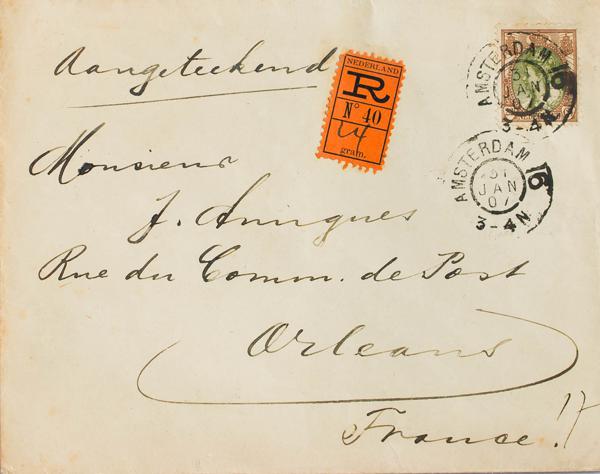 Aangeteekend
NEDERLAND
R
N° 40
14
gram.
AMSTERDAM 6
31
JAN
3-4N
AMSTERDAM 6
31
JAN
07
3-4N
Monsieur
J. Aningues
Rue du Comm. de Post
Orleans
France!